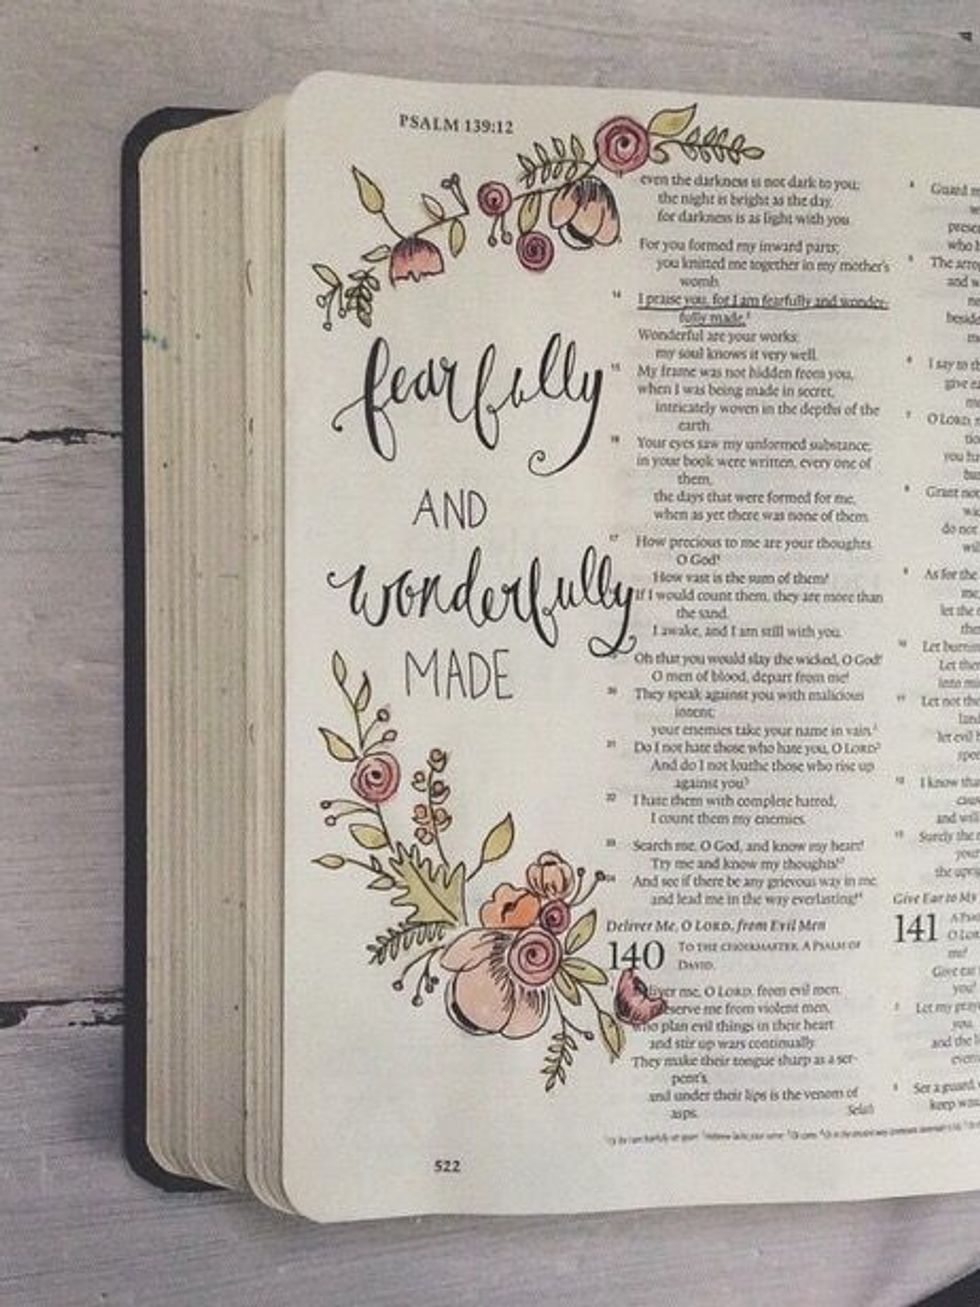 PSALM 139:12
fearfully
AND
wonderfully
MADE
even the darkness is not dark to you;
the night is bright as the day,
for darkness is as light with you.
For you formed my inward parts;
you knitted me together in my mother's
womb.
14 I praise you, for I am fearfully and wonder-
fully made.
Wonderful are your works;
my soul knows it very well.
15 My frame was not hidden from you,
when I was being made in secret,
intricately woven in the depths of the
earth.
16 Your eyes saw my unformed substance;
in your book were written, every one of
them,
the days that were formed for me,
when as yet there was none of them.
17 How precious to me are your thoughts,
O God!
How vast is the sum of them!
If I would count them, they are more than
the sand.
I awake, and I am still with you.
Oh that you would slay the wicked, O God!
O men of blood, depart from me!
20 They speak against you with malicious
intent;
your enemies take your name in vain.
21 Do I not hate those who hate you, O LORD?
And do I not loathe those who rise up
against you?
22 I hate them with complete hatred;
I count them my enemies.
23 Search me, O God, and know my heart!
Try me and know my thoughts!
24 And see if there be any grievous way in me,
and lead me in the way everlasting!
Deliver Me, O LORD, from Evil Men
140 TO THE CHOIRMASTER. A PSALM OF
DAVID.
me, O LORD, from evil men;
me from violent men,
who plan evil things in their heart
and stir up wars continually.
They make their tongue sharp as a ser-
pent's,
and under their lips is the venom of
asps. Selah
522
4 Guard m
w
prese
who h
5 The arro
and w
ne
besid
me
6 I say to th
give ea
me
7 O LORD, m
you ha
8 Grant not
wic
do not
will
9 As for the
me,
let the
the
10 Let burni
Let the
into mi
11 Let not the
land
let evil
spee
12 I know tha
cau
and will
13 Surely the
your
the uprig
Give Ear to My
141 A PSA
O LOR
me!
Give ear
you!
2 Let my pray
you,
and the li
eveni
3 Set a guard,
keep wat